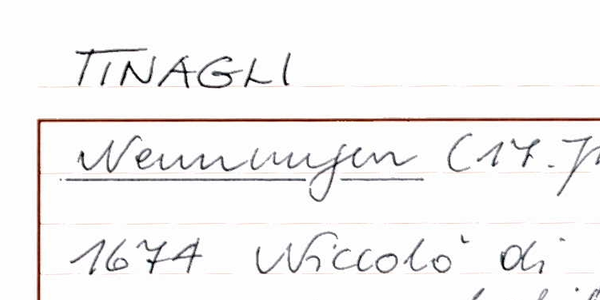 TINAGLI
Nennungen (17. J
1674 Niccolò di